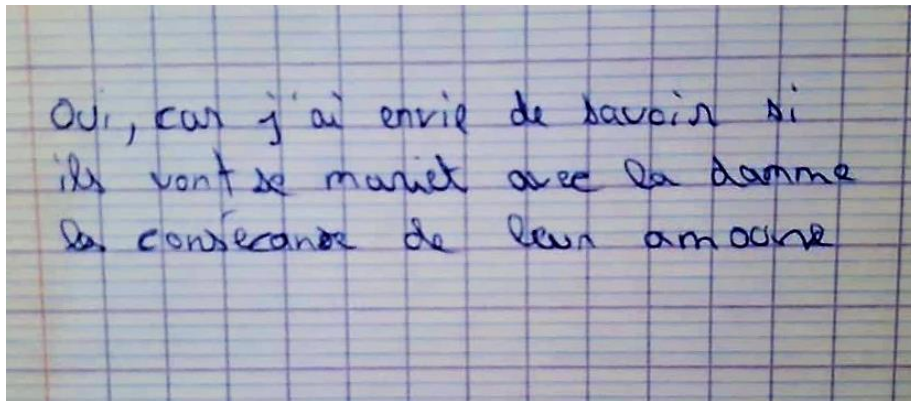 Oui, car j'ai envie de savoir si
ils vont se mariet avec la damme
la consecanse de leur amoure